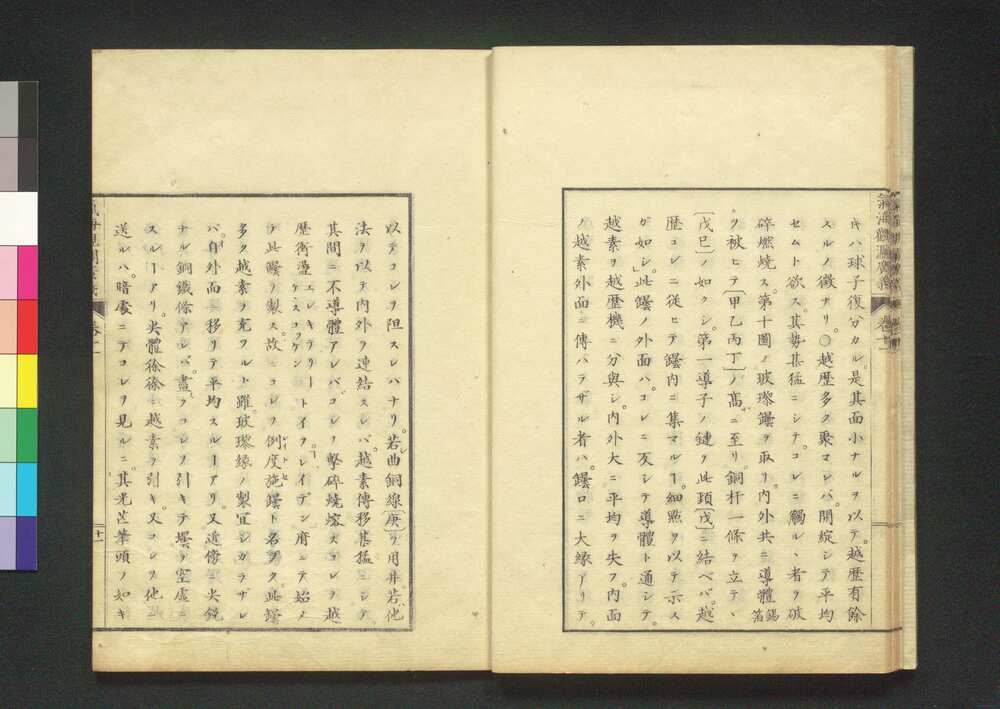 氣海觀瀾廣義 卷十一
キハ球子復分カル。是其面小ナルヲ以テ。越歷有餘
スルノ徵ナリ。○越歷多ク聚マレバ。開綻シテ平均
セムト欲ス。其勢甚猛ニシテ。コレニ觸ルヽ者ヲ破
碎燃燒ス。第十圖ノ玻瓈罎ヲ取リ。内外共ニ導體錫箔
ヲ被ヒテ〔甲乙丙丁〕ノ高ニ至リ。銅杆一條ヲ立テヽ
〔戊巳〕ノ如クシ。第一導子ノ鏈ヲ此頭〔戊〕ニ結ベバ。越
歷コレニ從ヒテ罎内ニ集マルヿ。細點ヲ以テ示ス
ガ如シ。此罎ノ外面ハ。コレニ反シテ導體ト通シテ。
越素ヲ越歷機ニ分與シ。内外大ニ平均ヲ失フ。内面
ノ越素外面ニ傳ハラザル者ハ。罎口ニ大緣アリテ。
以テコレヲ阻スレハナリ。若曲銅線〔庚〕ヲ用井若他
法ヲ以テ内外ヲ連結スレバ。越素傳移甚猛ニシテ
其間ニ不導體アレバ。コレヲ擊碎燒熔ス。コレヲ越
歷衝盪エレキテリーケ、スコックケントイフ。レイデン府ニテ始メ
テ此罎ヲ製ス。故ニコレヲ例度施罎ト名ヅク。此罎
多ク越素ヲ充ツルト雖。玻瓈緣ノ製宜シカラザレ
バ。自外面ニ移リテ平均スルヿアリ。又近傍ニ尖銳
ナル銅鐵條アレバ。盡クコレヲ引キテ罎ヲ空虛ニ
スルヿアリ。尖體徐徐ニ越素ヲ引キ。又コレヲ他ニ
送ルハ。暗處ニテコレヲ見ルニ。其光芒筆頭ノ如キ
卷十一
十一